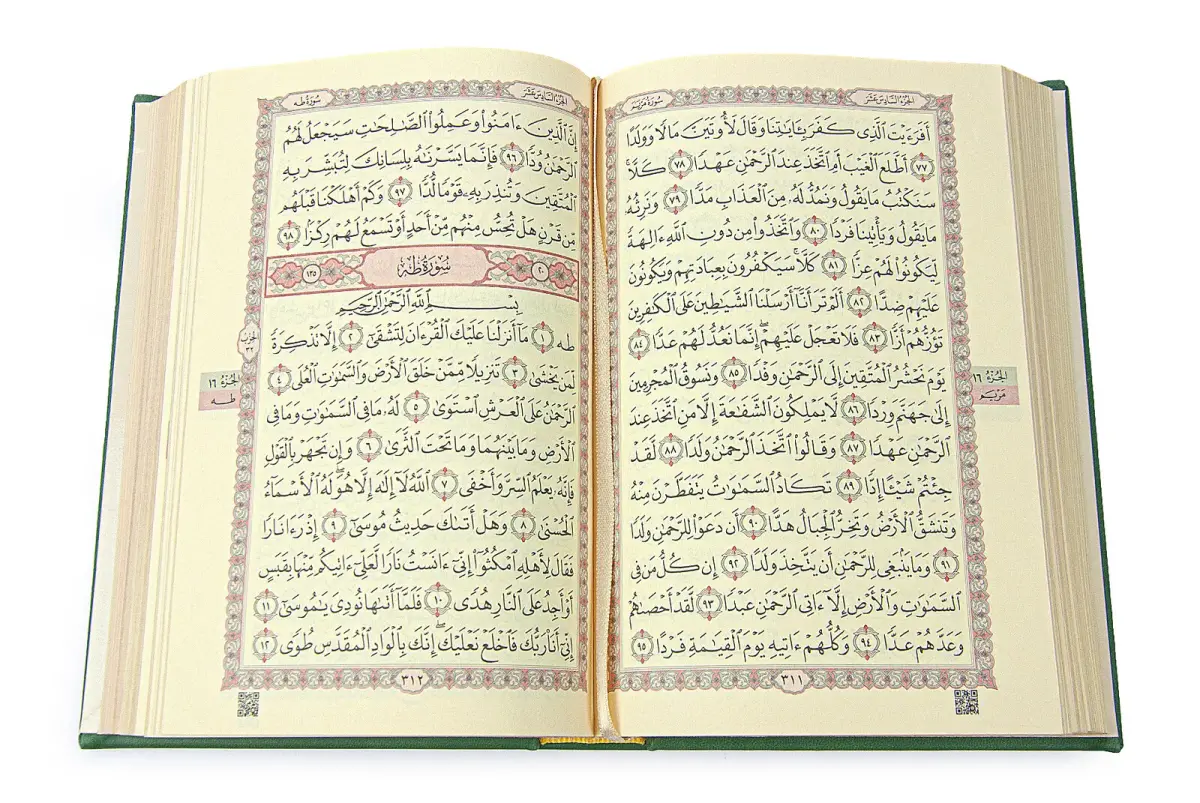 الجزء السادس عشر
سورة مريم
أفرءيت الذي كفر بـٔايـٰتنا وقال لأوتين مالا وولدا
٧٧ أطلع الغيب أم اتخذ عند الرحمـٰن عهدا ٧٨ كلا
سنكتب ما يقول ونمد له من العذاب مدا ٧٩ ونرثه
ما يقول ويأتينا فردا ٨٠ واتخذوا من دون الله ءالهة
ليكونوا لهم عزا ٨١ كلا سيكفرون بعبادتهم ويكونون
عليهم ضدا ٨٢ ألم تر أنا أرسلنا الشيـٰطين على الكـٰفرين
تؤزهم أزا ٨٣ فلا تعجل عليهم إنما نعد لهم عدا ٨٤
يوم نحشر المتقين إلى الرحمـٰن وفدا ٨٥ ونسوق المجرمين
إلى جهنم وردا ٨٦ لا يملكون الشفـٰعة إلا من اتخذ عند
الرحمـٰن عهدا ٨٧ وقالوا اتخذ الرحمـٰن ولدا ٨٨ لقد
جئتم شيـٔا إدا ٨٩ تكاد السمـٰوٰت يتفطرن منه
وتنشق الأرض وتخر الجبال هدا ٩٠ أن دعوا للرحمـٰن ولدا
٩١ وما ينبغي للرحمـٰن أن يتخذ ولدا ٩٢ إن كل من في
السمـٰوٰت والأرض إلا ءاتي الرحمـٰن عبدا ٩٣ لقد أحصىٰهم
وعدهم عدا ٩٤ وكلهم ءاتيه يوم القيـٰمة فردا ٩٥
٣١١
الجزء ١٦
مريم
الجزء السادس عشر
سورة طه
إن الذين ءامنوا وعملوا الصـٰلحـٰت سيجعل لهم
الرحمـٰن ودا ٩٦ فإنما يسرنـٰه بلسانك لتبشر به
المتقين وتنذر به قوما لدا ٩٧ وكم أهلكنا قبلهم
من قرن هل تحس منهم من أحد أو تسمع لهم ركزا ٩٨
٢٠ سورة طه ١٣٥
بسم الله الرحمـٰن الرحيم
طه ١ ما أنزلنا عليك القرءان لتشقى ٢ إلا تذكرة
لمن يخشى ٣ تنزيلا ممن خلق الأرض والسمـٰوٰت العلى ٤
الرحمـٰن على العرش استوى ٥ له ما في السمـٰوٰت وما في
الأرض وما بينهما وما تحت الثرى ٦ وإن تجهر بالقول
فإنه يعلم السر وأخفى ٧ الله لا إلـٰه إلا هو له الأسماء
الحسنى ٨ وهل أتىٰك حديث موسى ٩ إذ رءا نارا
فقال لأهله امكثوا إني ءانست نارا لعلي ءاتيكم منها بقبس
أو أجد على النار هدى ١٠ فلما أتىٰها نودي يـٰموسى ١١
إني أنا ربك فاخلع نعليك إنك بالواد المقدس طوى ١٢
٣١٢
الحزب
٣٢
الجزء ١٦
طه